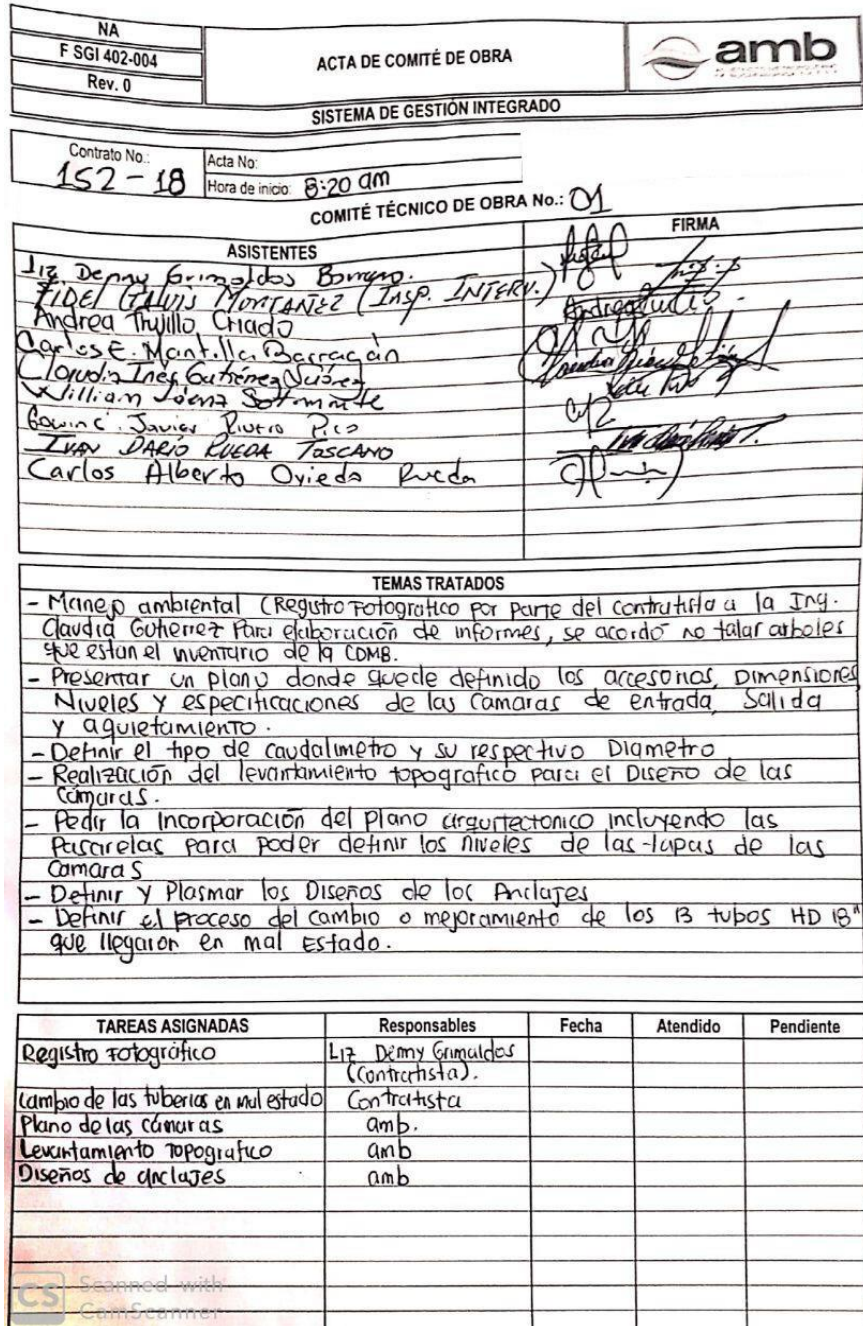 NA
F SGI 402-004
Rev. 0
ACTA DE COMITÉ DE OBRA
amb
SISTEMA DE GESTIÓN INTEGRADO
Contrato No.: 152-18
Acta No:
Hora de inicio: 8:20 am
COMITÉ TÉCNICO DE OBRA No.: 01
ASISTENTES
FIRMA
Liz Denny Grimaldos Borrero.
FIDEL GALVIS MONTAÑEZ (INSP. INTERV.)
Andrea Trujillo Criado
Carlos E. Mantilla Barragán
Claudia Inés Gutiérrez Suárez
William
Javier Rivero Pico
IVAN DARIO RUEDA TOSCANO
Carlos Alberto Oviedo Rueda
TEMAS TRATADOS
- Manejo ambiental (Registro Fotografico por parte del contratista a la Ing.
Claudia Gutierrez Para elaboración de informes, se acordó no talar arboles
que estan el inventario de la CDMB.
- Presentar un plano donde quede definido los accesorios, Dimensiones
Niveles y especificaciones de las Camaras de entrada, Salida
y aquietamiento.
- Definir el tipo de caudalimetro y su respectivo Diametro
- Realización del levantamiento topografico para el Diseño de las
Cámaras.
- Pedir la Incorporación del plano arquitectonico incluyendo las
Pasarelas para poder definir los niveles de las tapas de las
Camaras
- Definir y Plasmar los Diseños de los Anclajes
- Definir el proceso del cambio o mejoramiento de los 13 tubos HD 18"
que llegaron en mal Estado.
TAREAS ASIGNADAS Responsables Fecha Atendido Pendiente
Registro Fotográfico Liz Denny Grimaldos
(Contratista).
Cambio de las tuberias en mal estado Contratista
Plano de las cámaras amb.
Levantamiento Topografico amb
Diseños de anclajes amb
CS Scanned with
CamScanner